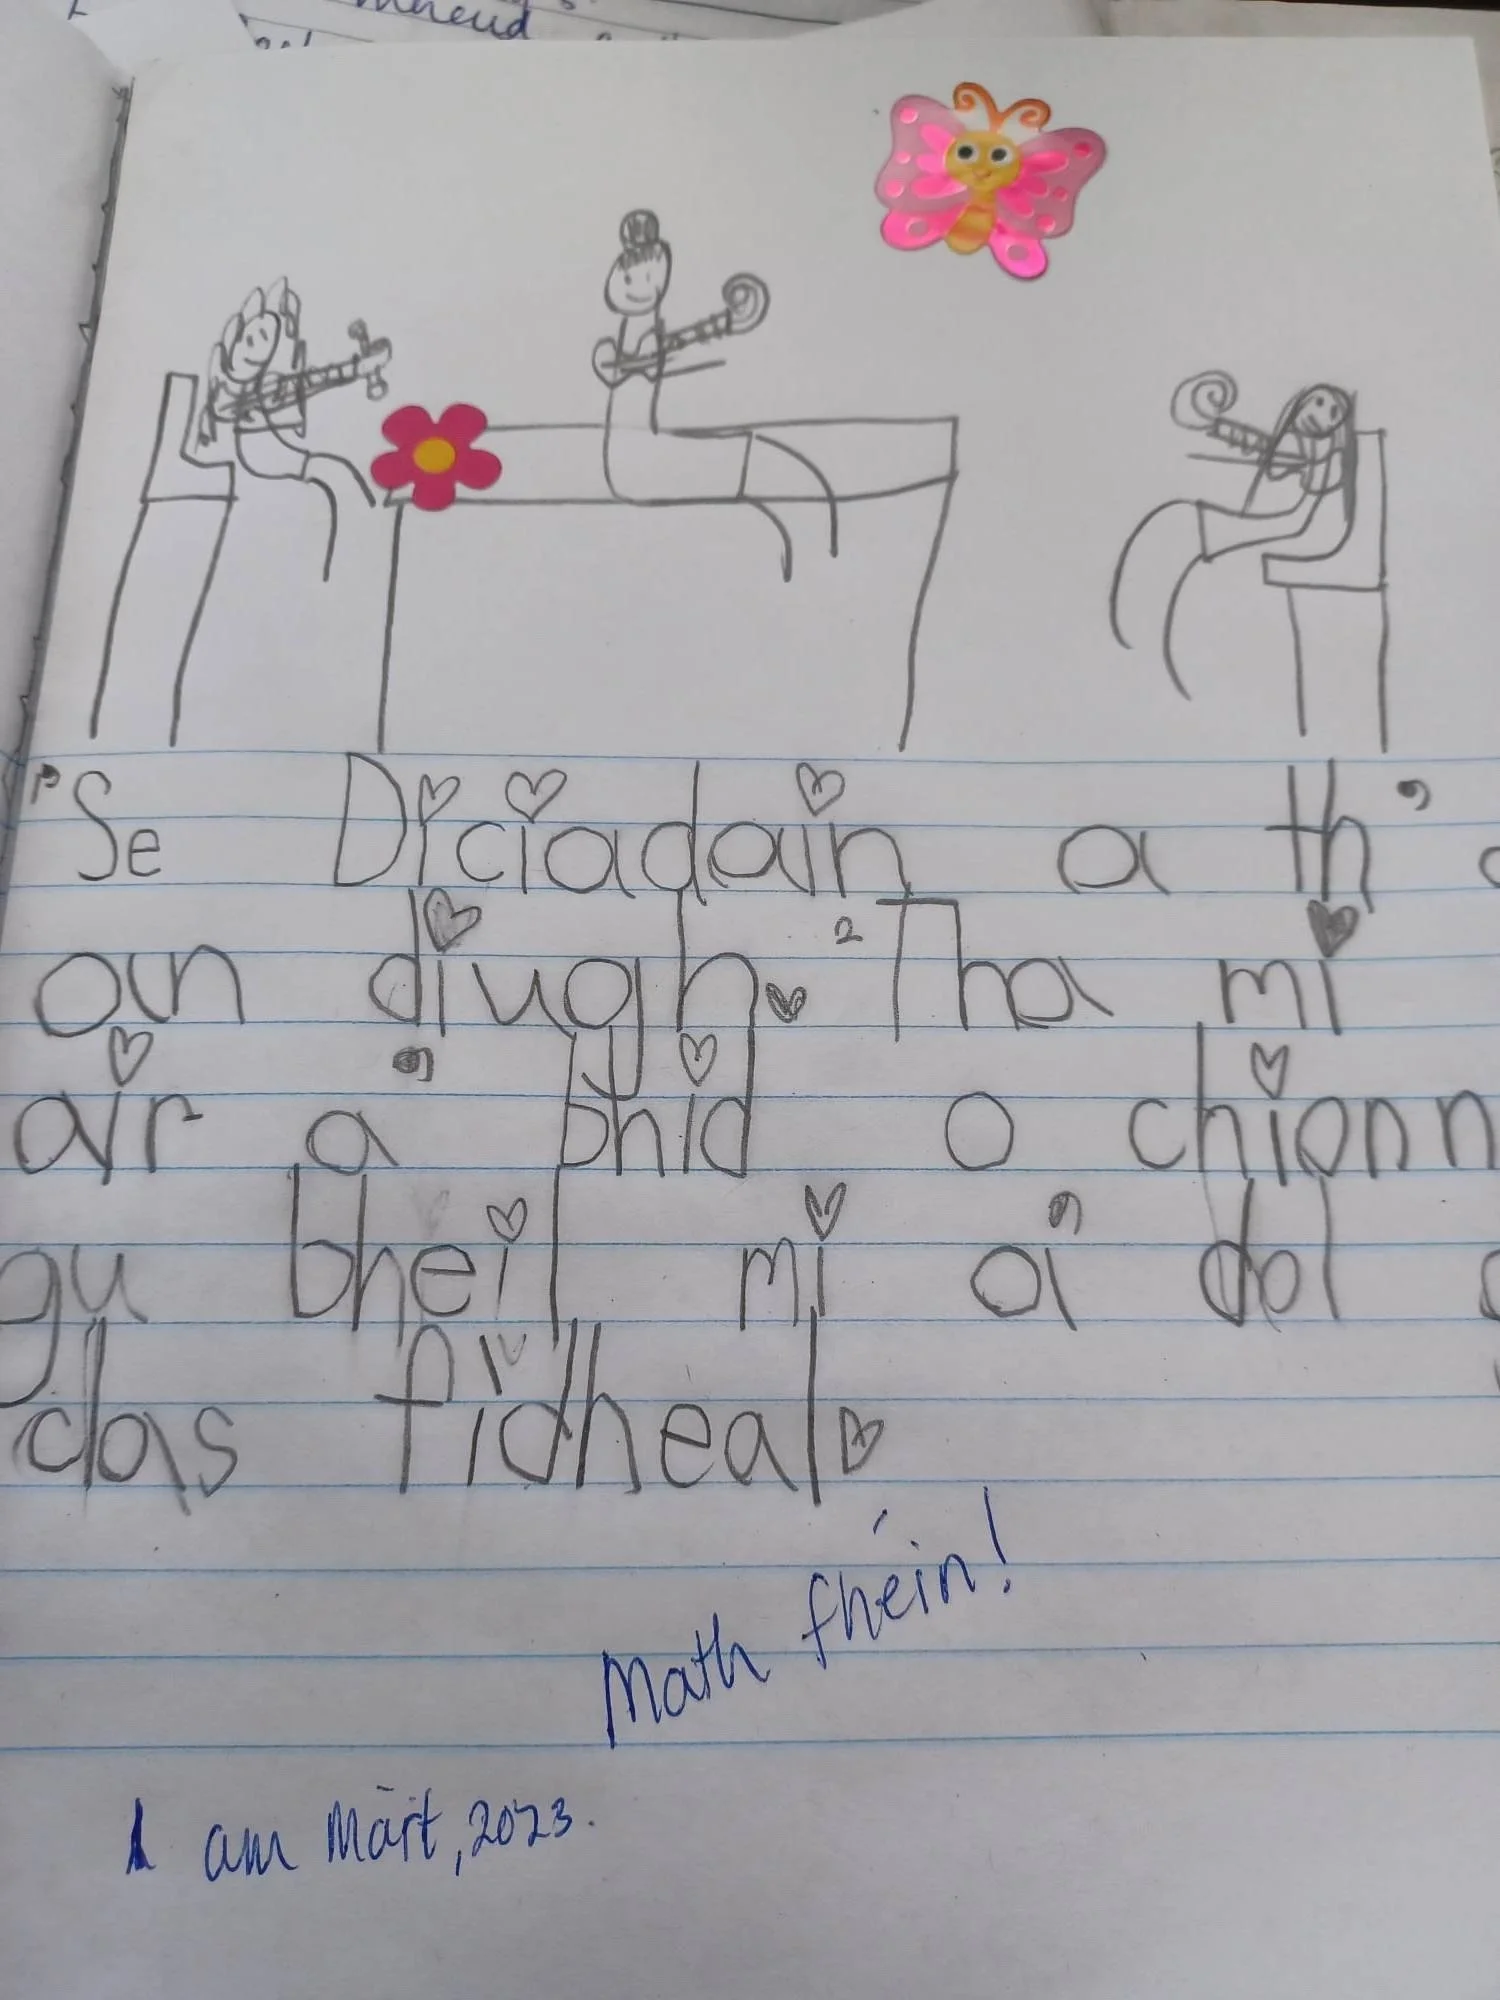 mheud
'Se Diciadain a th'
an diugh. 2 Tha mi
air a' bhid o chionn
gu bheil mi a' dol
clas fidheal
Math fhéin!
1 am Màirt, 2023.